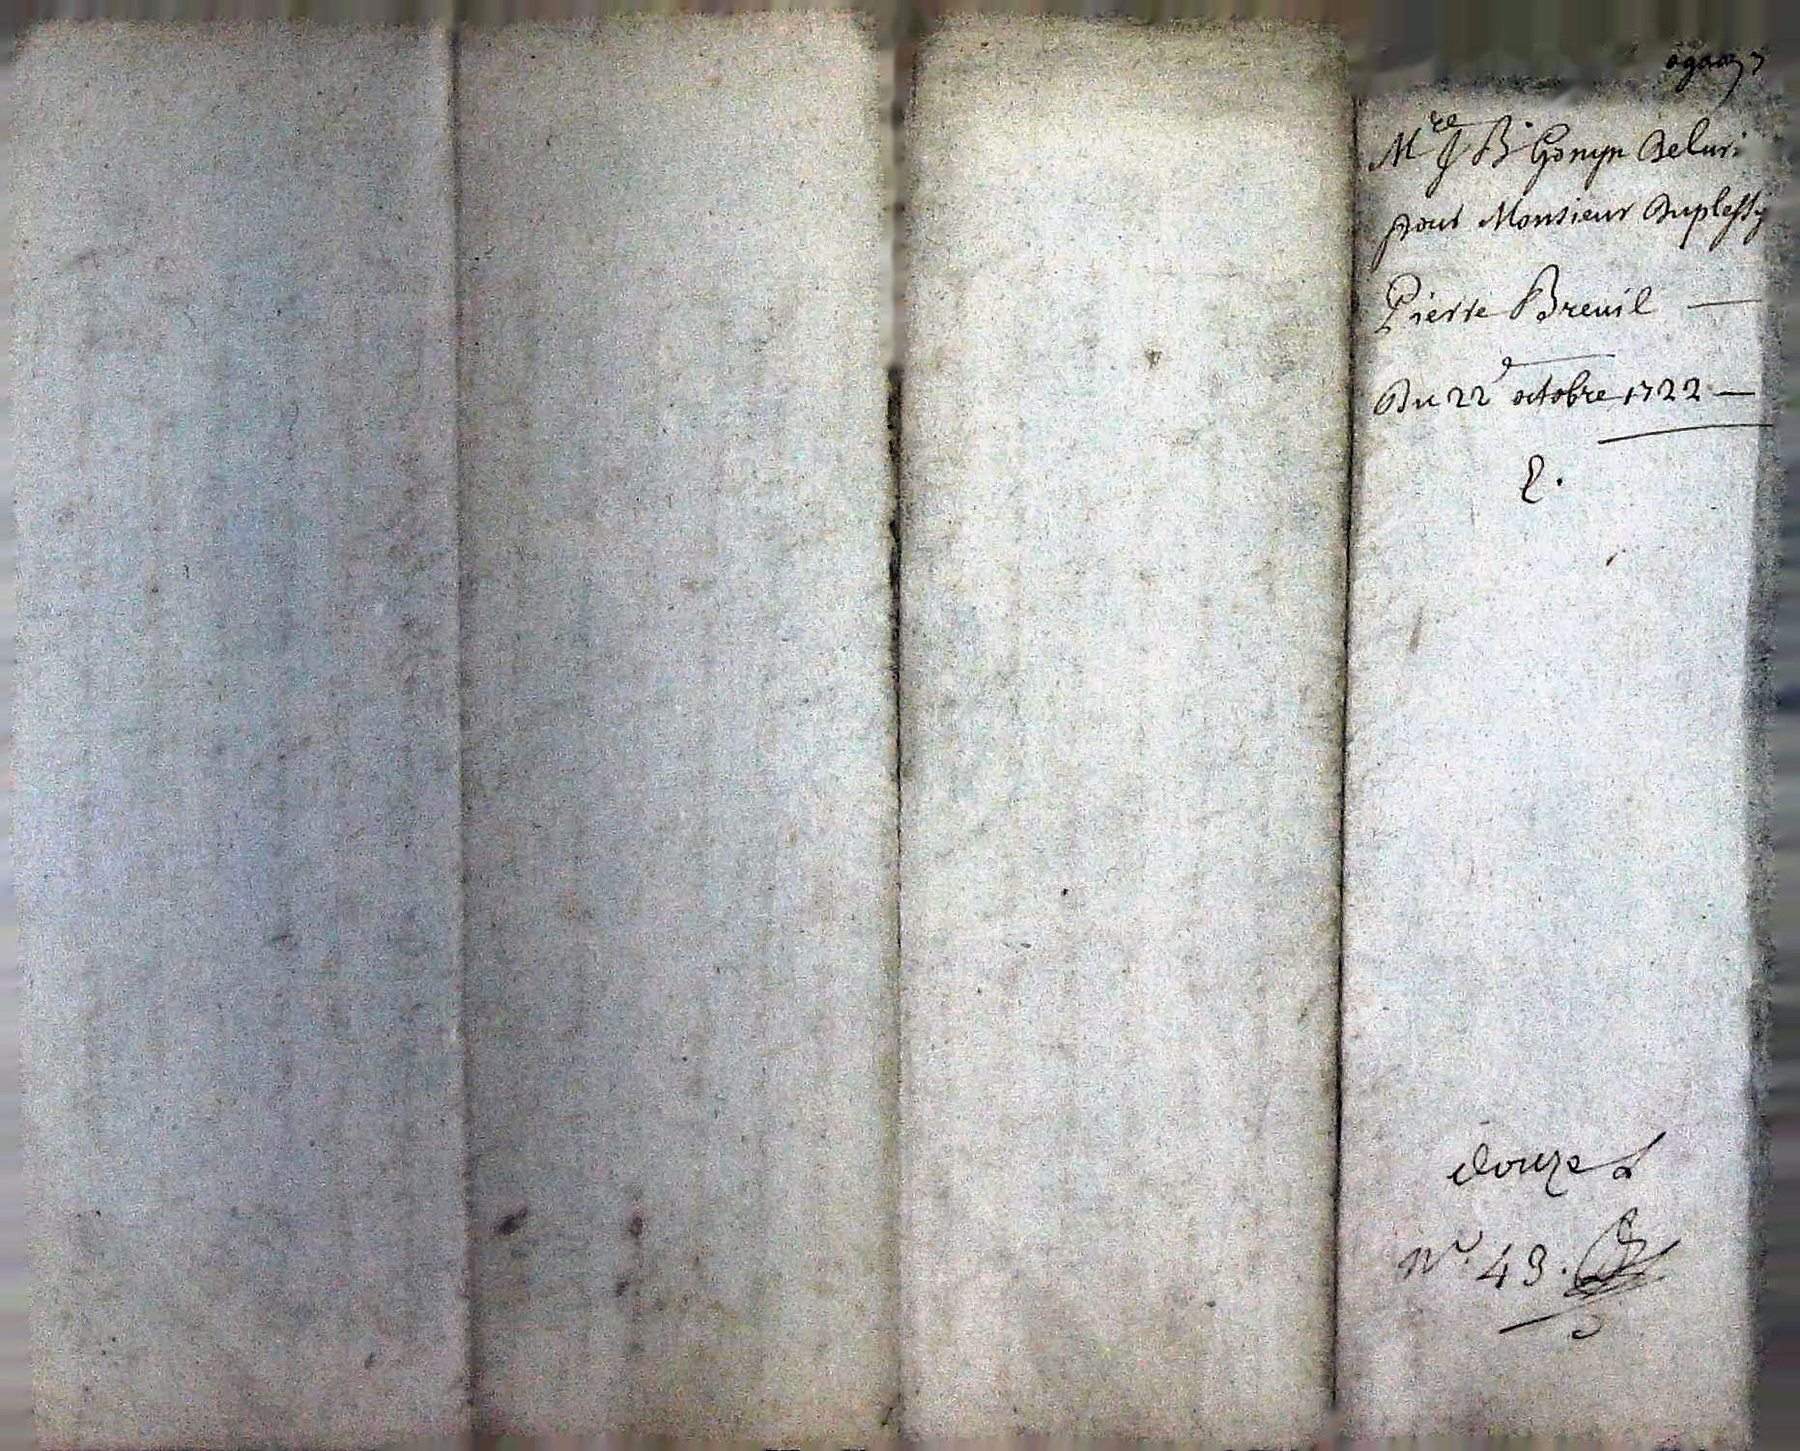 Mre J B Gomyn Deluri
pour Monsieur Duplessy
Pierre Breuil
Du 22e octobre 1722
2.
douze
No. 43.